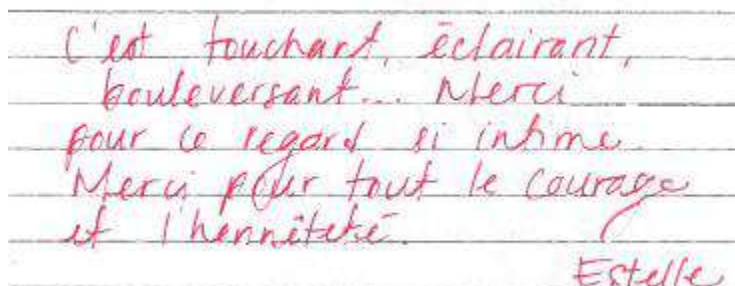 C'est touchant, éclairant,
bouleversant... Merci
pour ce regard si intime.
Merci pour tout le courage
et l'hennêteté.
Estelle